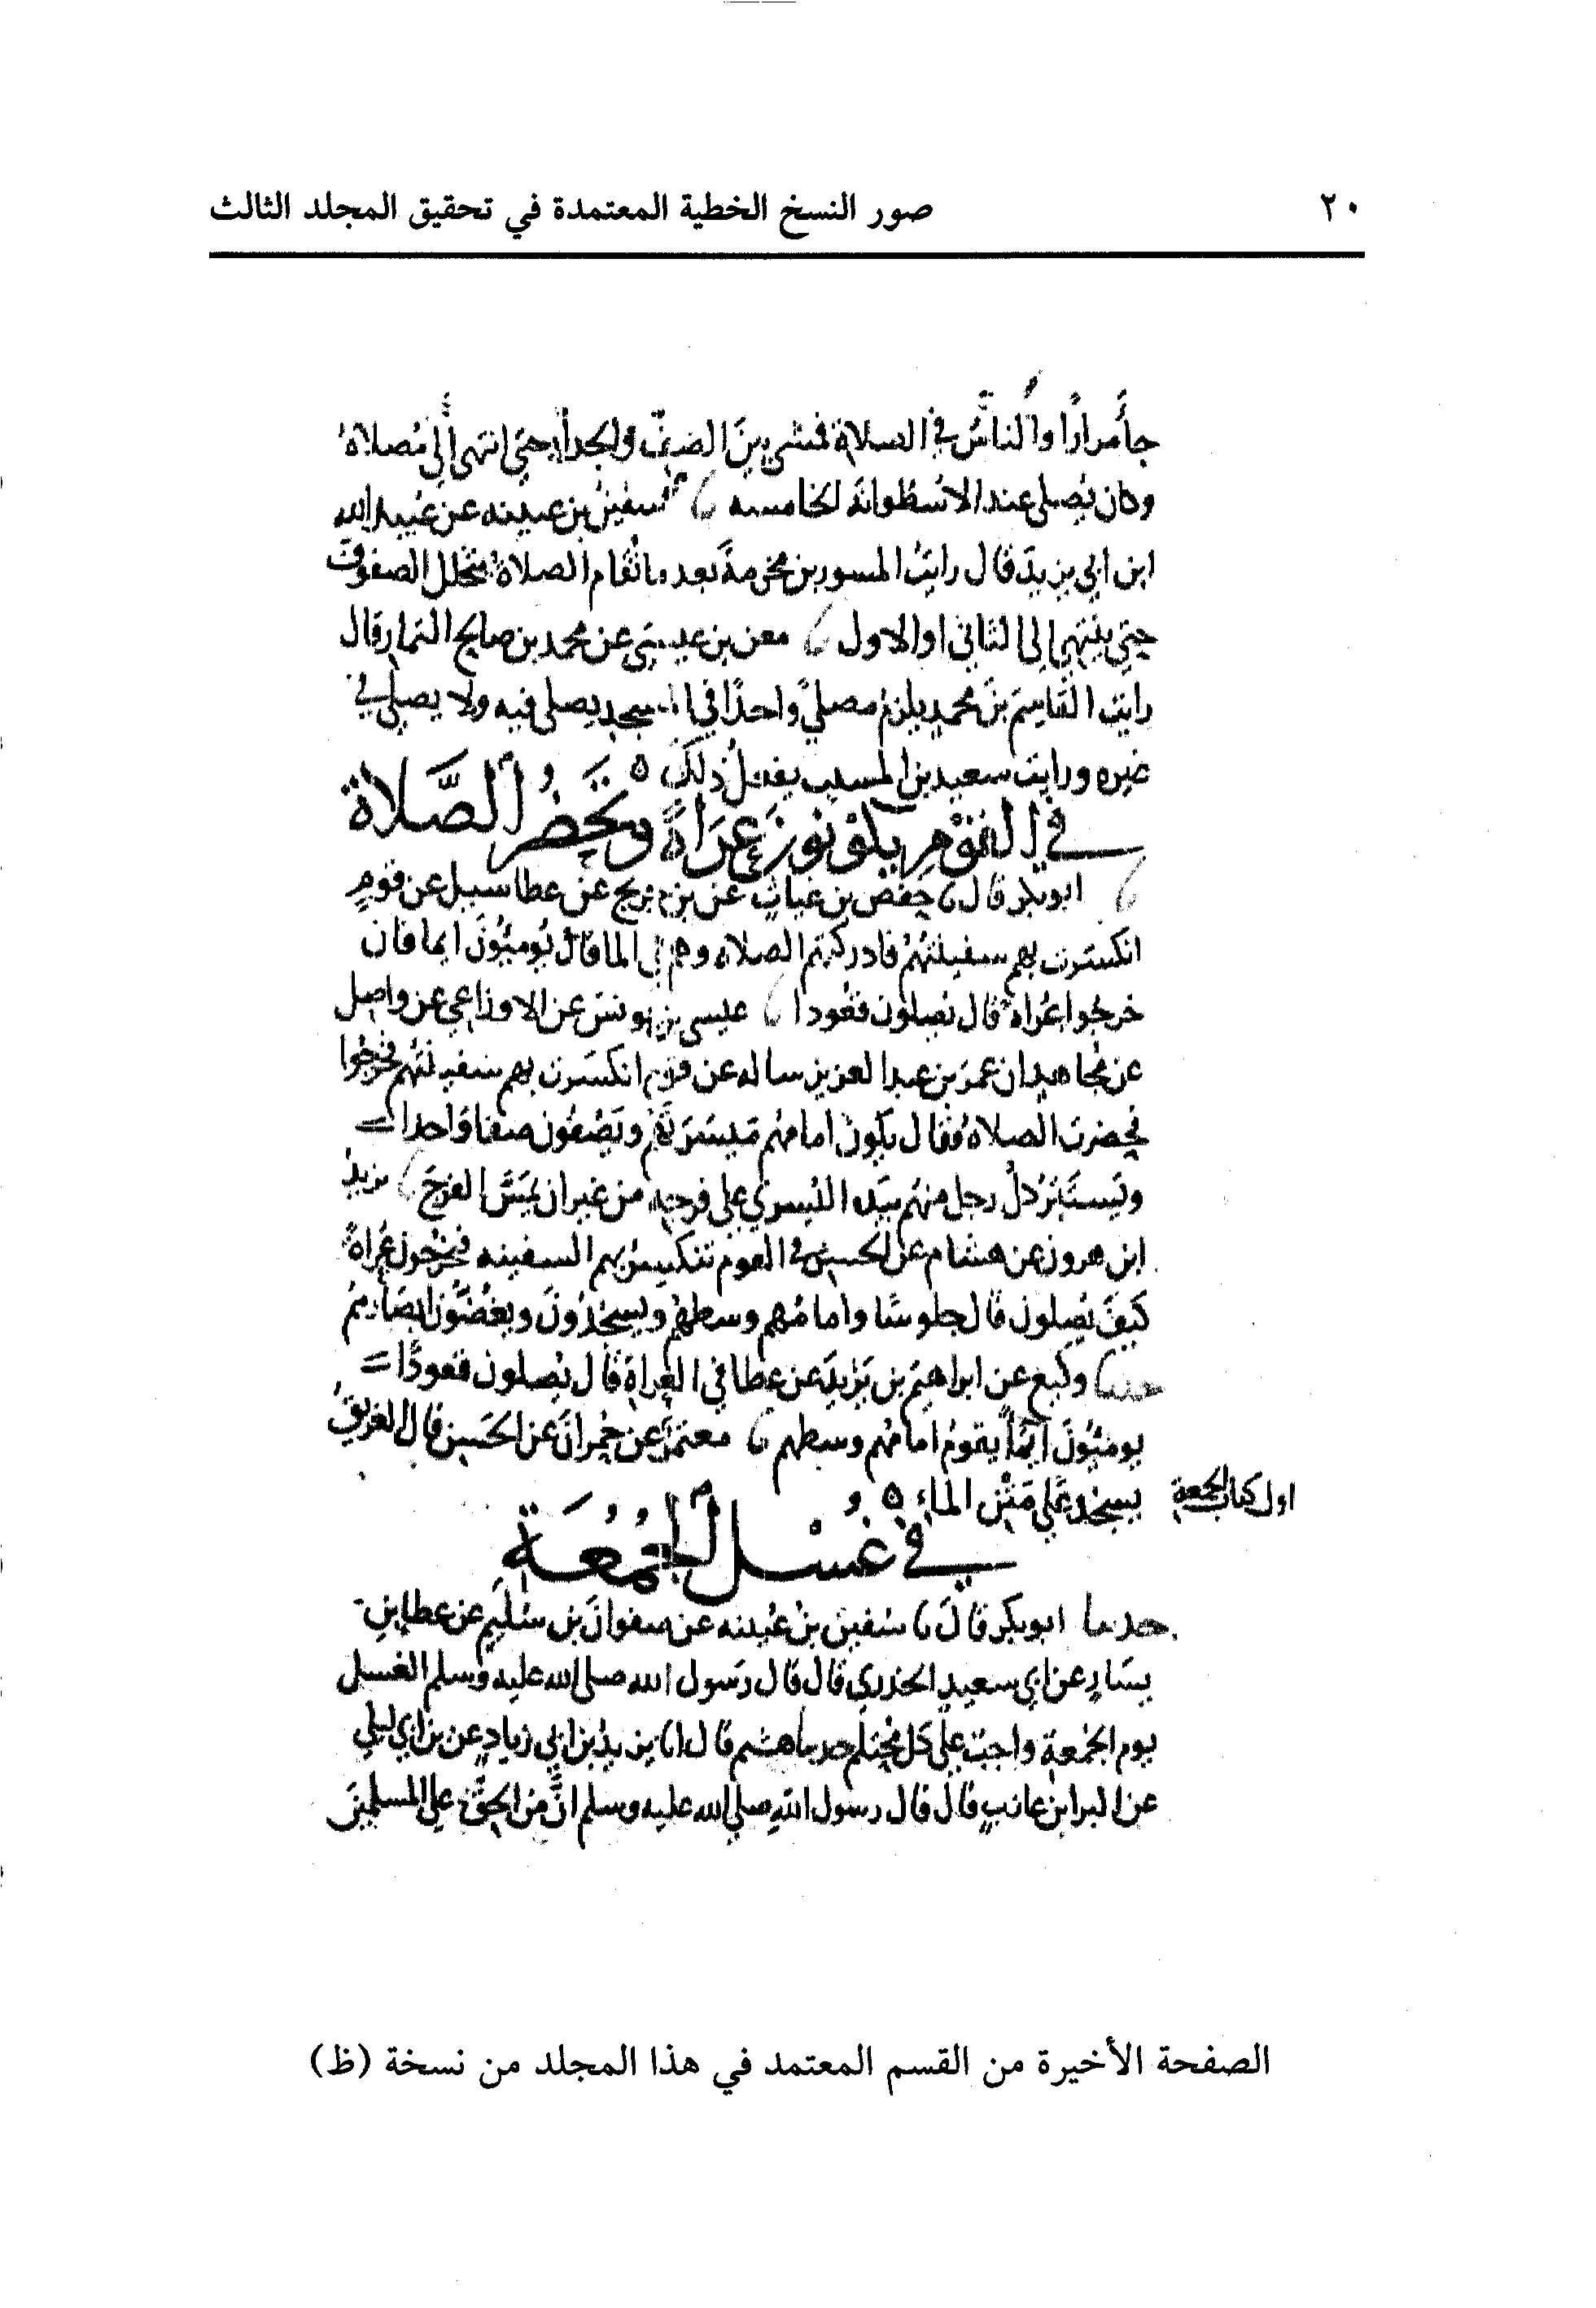 ٢٠
صور النسخ الخطية المعتمدة في تحقيق المجلد الثالث
جأ مرارًا والناسُ في الصلاة فمشى بينَ الصف والجدار حتى انتهى إلى مُصلاهُ
وكان يُصلي عند الاسطوانة الخامسه سفين بن عيينه عن عُبيد الله
ابن ابي يزيدَ قال رايتُ المسور بن مخرمةَ بعد ما تُقام الصلاة يتخلل الصفوف
حتى ينتهي إلى الثاني او الاول معن بن عيسى عن محمد بن صالح التمار قال
رايت القاسِمَ بنَ محمدٍ يلزمُ مصلىً واحدًا في المسجد يصلى فيه ولا يصلى في
غيره ورايت سعيد بن المسيب يفعلُ ذلكَ
في القوْمِ يَكُونُونَ عُرَاةً وتَحْضُرُ الصَّلاة
ابو بكر قال نا حفص بن غياثٍ عن بن جريج عن عطا سيل عن قومٍ
انكسرت بهم سفينتهُمْ فادركتهم الصلاه وهم في الما قال يُومئونَ ايما فان
خرجوا عُراه قال يُصلون قعُودا عيسى بن يونسَ عن الاوزاعي عن واصل
عن مُجاهدٍ ان عمرَ بن عبد العزيز ساله عن قومٍ انكسَرت بهم سفينتُهم فخرجوا
تحضرت الصلاةُ فقال يكونُ امامهم مَيسَرتَهم ويَصُفُون صفا واحدا =
ويَستَتِرُ كلُ رجل منهم بيَده اليُسرى على فرجه من غير ان يَمَسَّ الفرجَ يزيدُ
ابن هرون عن هشام عن الحسن في القوم تنكسرُ بهم السفينه فيخرُجون عُراةً
كيفَ يُصلون قال جلوسًا وامامُهم وسطهُم ويسجُدُونَ ويغُضُّونَ ابصارهم
حدثنا وكيع عن ابراهيم بن يَزيدَ عن عطا في العراة قال يُصلون قعودًا =
يومئُونَ ايمًا يقومُ امامهُم وسطهم معتمرٌ عن حُمرانَ عن الحَسَن قال الغريقُ
يسجُد على مَتْن الماءِ
اول كتاب الجمعة
في غُسْلِ الجُمُعَة
حدثنا ابو بكر قالَ نا سُفين بن عُيينه عن صفوانَ بن سُليمٍ عن عطا بن
يسَارٍ عن ابي سعيدٍ الخدري قال قال رَسول الله صلى الله عليه وسلم الغسل
يوم الجُمعةِ واجبٌ على كل مُحتلمٍ حدثنا هشيم قال انا يزيدُ بن ابي زيادٍ عن بن ابي ليلي
عن البرا بن عازبٍ قال قال رسول اللهِ صلى الله عليه وسلم انَّ مِنَ الحقِّ على المسلمينَ
الصفحة الأخيرة من القسم المعتمد في هذا المجلد من نسخة (ظ)